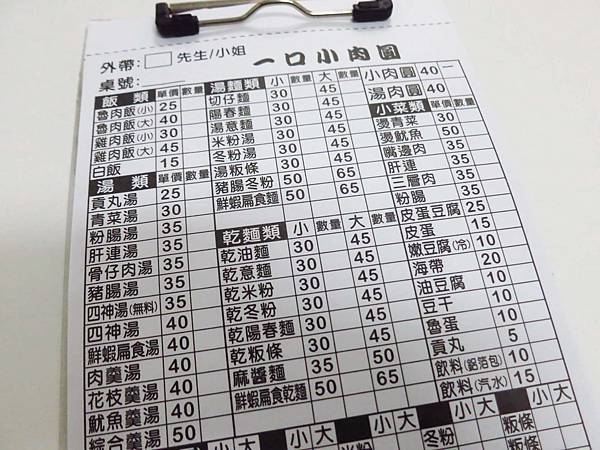 外帶: 先生/小姐
桌號:
一口小肉圓
飯類 單價 數量
魯肉飯(小) 25
魯肉飯(大) 40
雞肉飯(小) 30
雞肉飯(大) 45
白飯 15
湯類 單價 數量
貢丸湯 25
青菜湯 30
粉腸湯 35
肝連湯 35
骨仔肉湯 35
豬腸湯 35
四神湯(無料) 35
四神湯 40
鮮蝦扁食湯 40
肉羹湯 40
花枝羹湯 40
魷魚羹湯 40
綜合羹湯 50
湯麵類 小 數量 大 數量
切仔麵 30 45
陽春麵 30 45
湯意麵 30 45
米粉湯 30 45
冬粉湯 30 45
湯粄條 30 45
豬腸冬粉 50 65
鮮蝦扁食麵 50 65
乾麵類 小 數量 大 數量
乾油麵 30 45
乾意麵 30 45
乾米粉 30 45
乾冬粉 30 45
乾陽春麵 30 45
乾粄條 30 45
麻醬麵 35 50
鮮蝦扁食乾麵 50 65
小肉圓 40 一
湯肉圓 40
小菜類 單價 數量
燙青菜 30
燙魷魚 50
嘴邊肉 35
肝連 35
三層肉 35
粉腸 35
皮蛋豆腐 25
皮蛋 15
嫩豆腐(冷) 10
海帶 20
油豆腐 10
豆干 10
魯蛋 10
貢丸 5
飲料(鋁箔包) 10
飲料(汽水) 15
小 大 小 大 小 大 粄條
米粉 冬粉 粄條